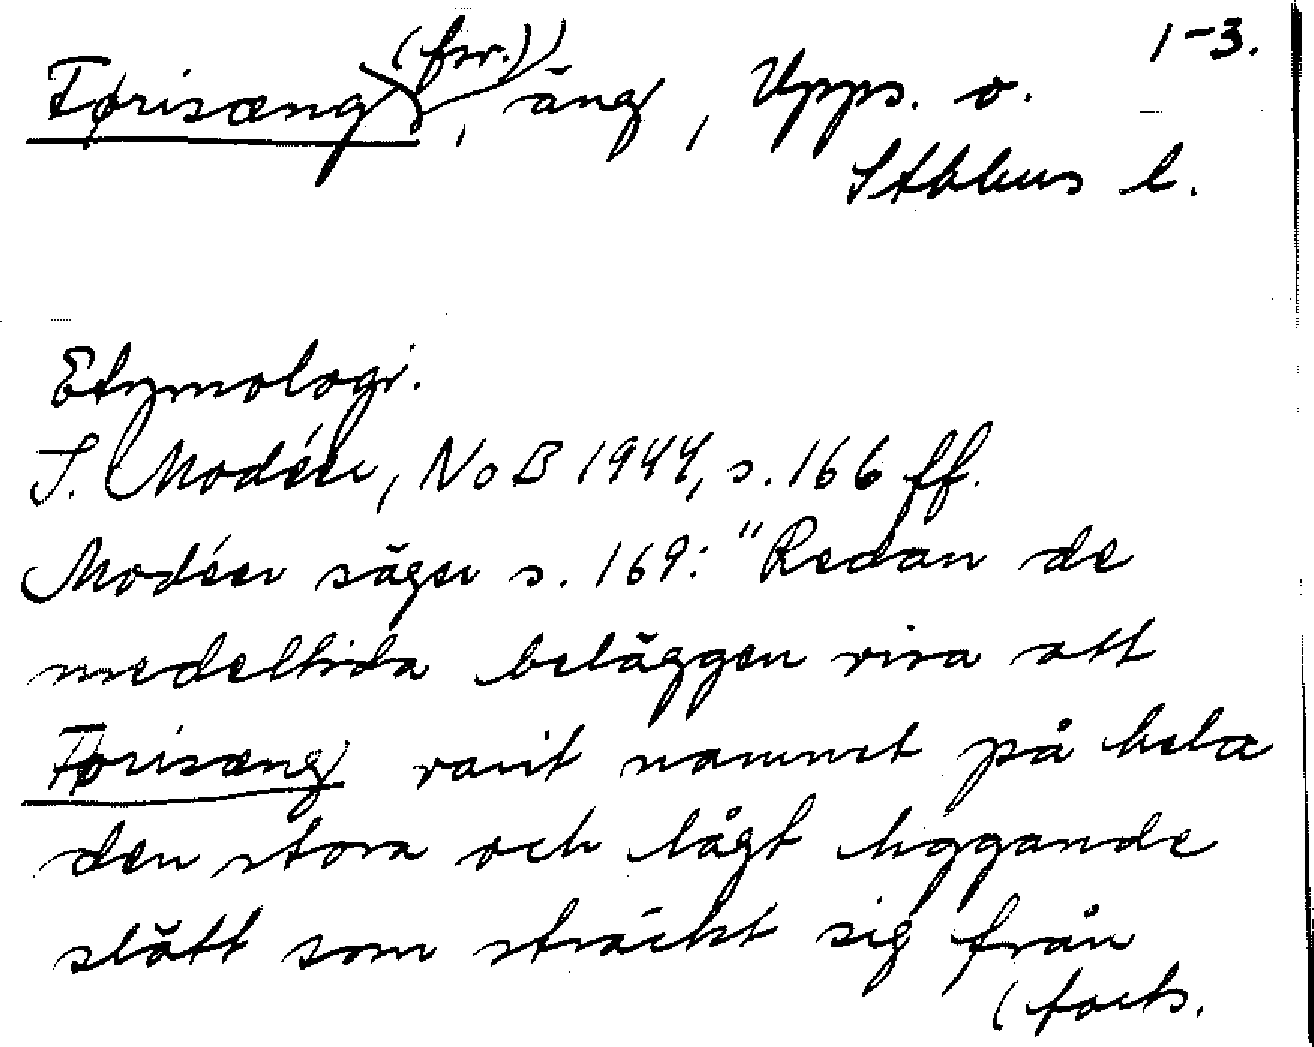 1-3.
Førisæng (fsv.), äng, Upps. o.
Sthlms l.
Etymologi.
I. Modéer, NoB 1944, s. 166 ff.
Modéer säger s. 169: "Redan de
medeltida beläggen visa att
Førisæng varit namnet på hela
den stora och lågt liggande
slätt som sträckt sig från
(forts.